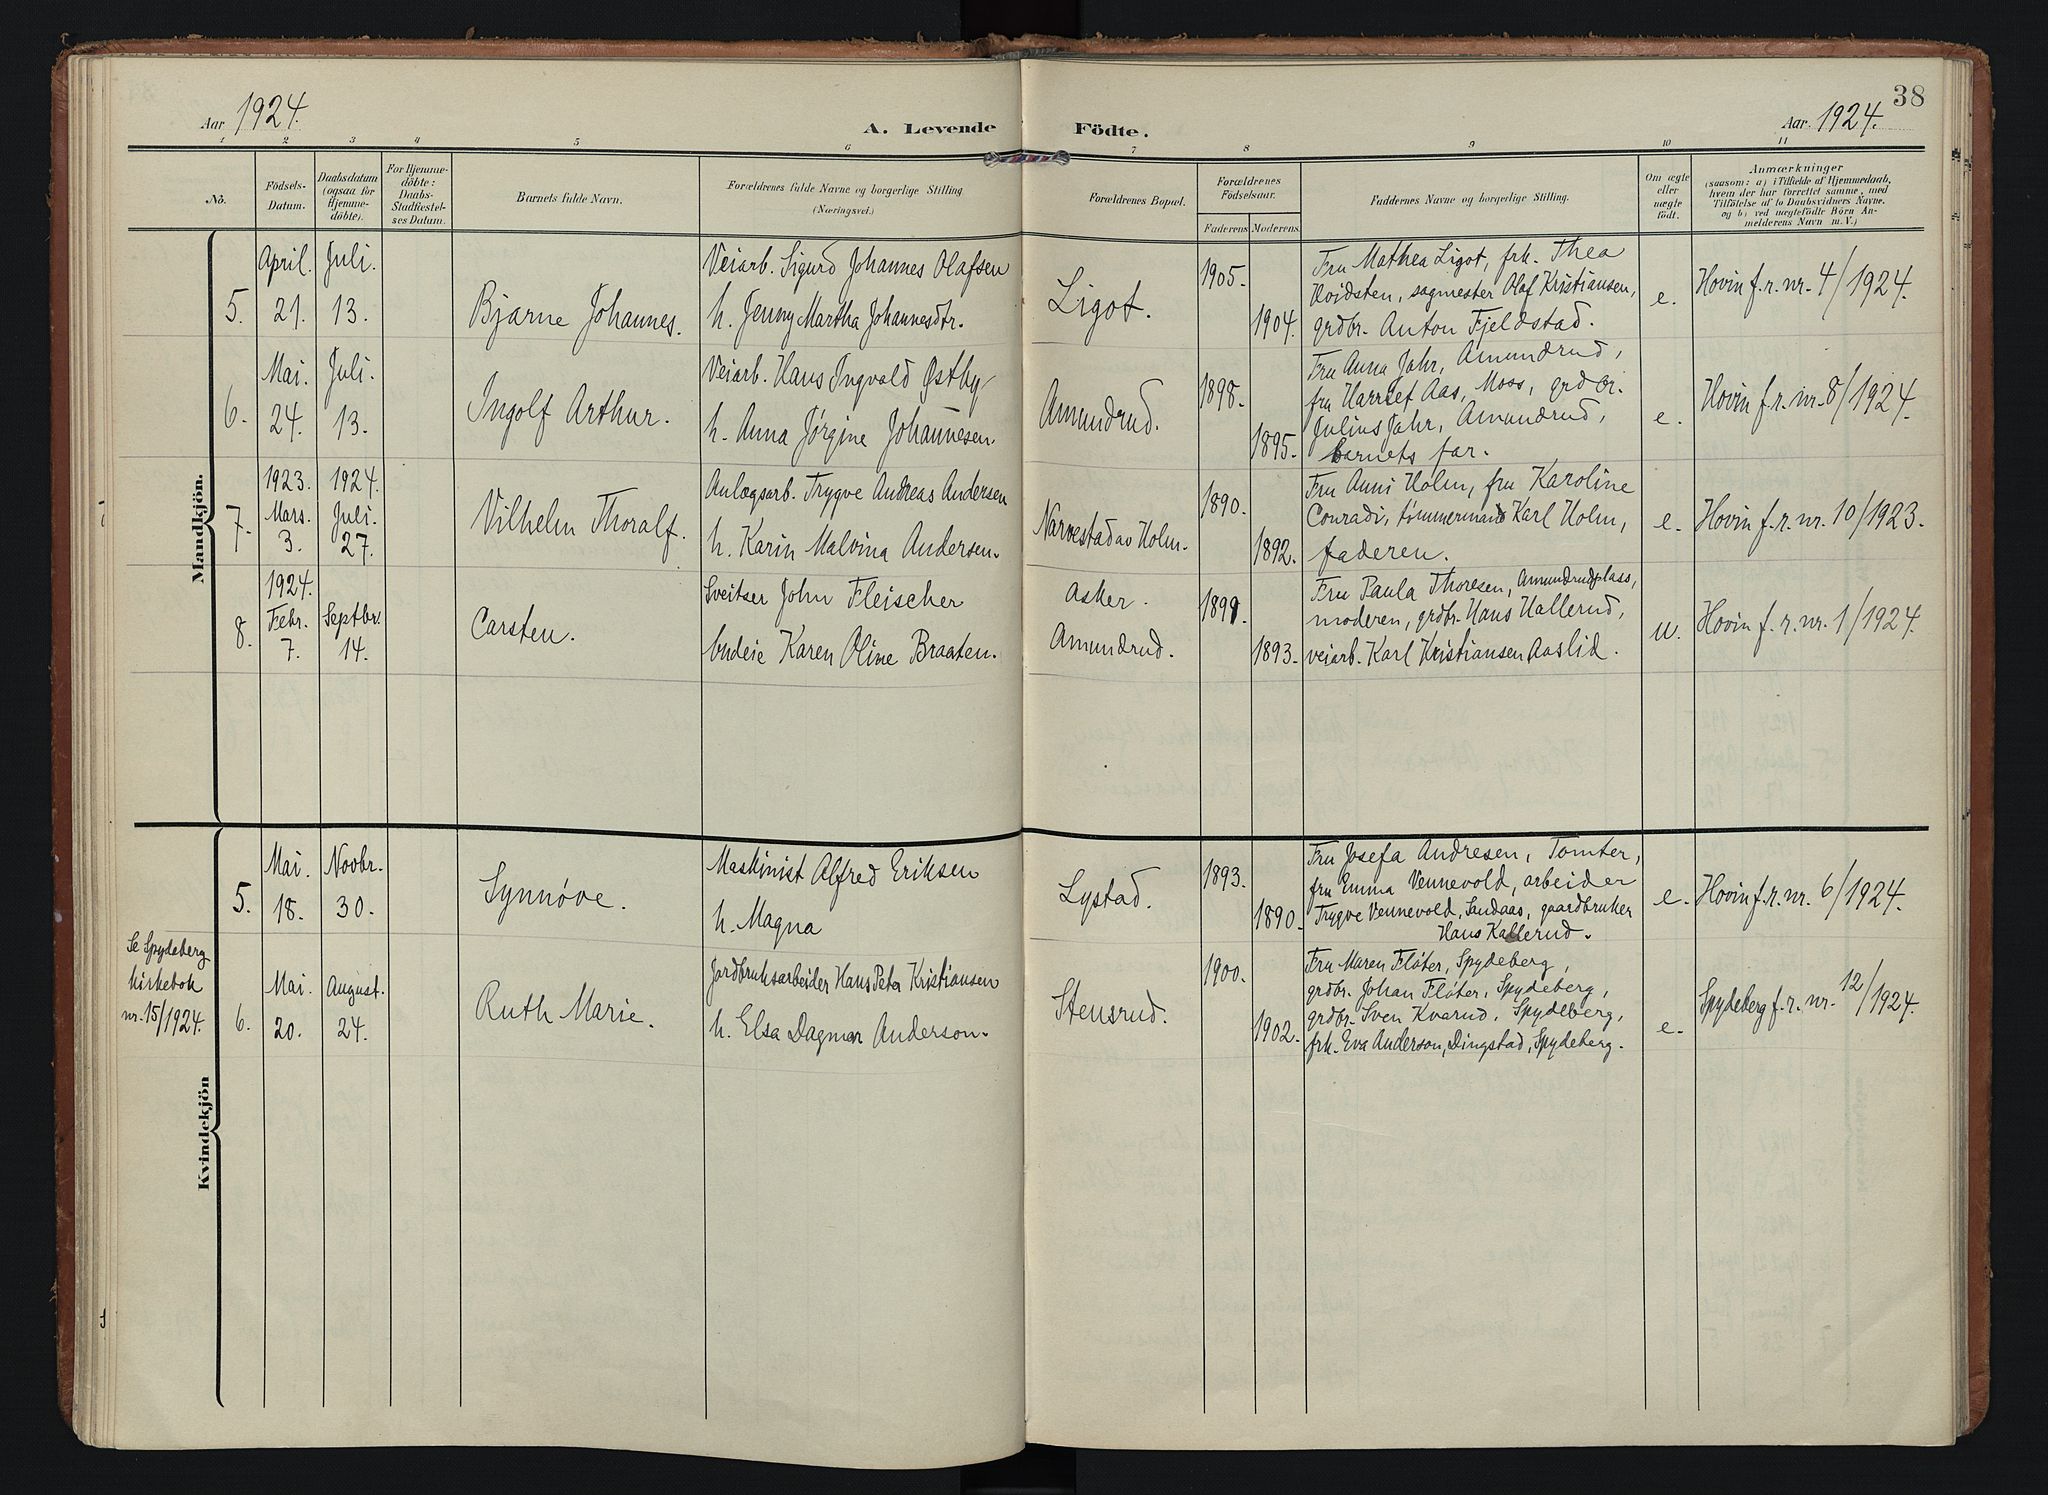 38
Aar 1924.
A. Levende Födte.
Aar 1924.
1 2 3 4 5 6 7 8 9 10 11
No.
Födsels-
Datum.
Daabsdatum
(ogsaa for
Hjemme-
döbte).
For Hjemme-
döbte:
Daabs-
Stadfæstel-
ses Datum.
Barnets fulde Navn.
Forældrenes fulde Navne og borgerlige Stilling
(Næringsvei.)
Forældrenes Bopæl.
Forældrenes
Födselsaar.
Faderens Moderens
Faddernes Navne og borgerlige Stilling.
Om ægte
eller
uægte
födt.
Anmærkninger
(saasom: a) i Tilfælde af Hjemmedaab,
hvem der har forrettet samme, med
Tilföielse af to Daabsvidners Navne.
og b) ved uægtefödte Börn An-
melderens Navn m. V.)
Mandkjön.
5.
April.
21.
Juli.
13.
Bjarne Johannes.
Veiarb. Sigurd Johannes Olafsen
h. Jenny Martha Johannesdtr.
Ligot.
1905.
1904.
Fru Mathea Ligot, frk. Thea
Hvidsten, sagmester Olaf Kristiansen,
grdbr. Anton Fjeldstad.
e.
Hovin f. r. nr. 4/1924.
6.
Mai.
24.
Juli.
13.
Ingolf Arthur.
Veiarb. Hans Ingvald Østby
h. Anna Jørgine Johannesen.
Amundrud.
1898.
1895.
Fru Anna Jahr, Amundrud,
fru Harriet Aas, Moss, grdbr.
Julius Jahr, Amundrud,
barnets far.
e.
Hovin f. r. nr. 8/1924.
7.
1923.
Mars.
3.
1924.
Juli.
27.
Vilhelm Thoralf.
Anlægsarb. Trygve Andreas Andersen
h. Karin Malvina Andersen.
Narvestad av Holm.
1890.
1892.
Fru Anni Holm, fru Karoline
Conradi, tømmermand Karl Holm,
faderen.
e.
Hovin f. r. nr. 10/1923.
8.
1924.
Febr.
7.
Septbr.
14.
Carsten.
Sveitser John Fleischer
budeie Karen Oline Braaten.
Asker.
Amundrud.
1893.
Fru Paula Thoresen, Amundrudplass,
moderen, grdbr. Hans Hallerud,
veiarb. Karl Kristiansen Aaslid.
u.
Hovin f. r. nr. 1/1924.
Kvindekjön
5.
Mai.
18.
Novbr.
30.
Synnøve.
Maskinist Alfred Eriksen
h. Magna
Lystad.
1893.
1890.
Fru Josefa Andresen, Tomter,
fru Emma Vennevold, arbeider
Trygve Vennevold, Sandaas, gaardbruker
Hans Kallerud.
e.
Hovin f. r. nr. 6/1924.
Se Spydeberg
kirkebok
nr. 15/1924.
6.
Mai.
20.
August.
24.
Ruth Marie.
Jordbruksarbeider Hans Peter Kristiansen
h. Elsa Dagmar Anderson.
Stensrud.
1900.
1902.
Fru Maren Fløter, Spydeberg,
grdbr. Johan Fløter, Spydeberg,
grdbr. Sven Kvarud, Spydeberg,
frk. Eva Anderson, Dingstad, Spydeberg.
e.
Spydeberg f. r. nr. 12/1924.